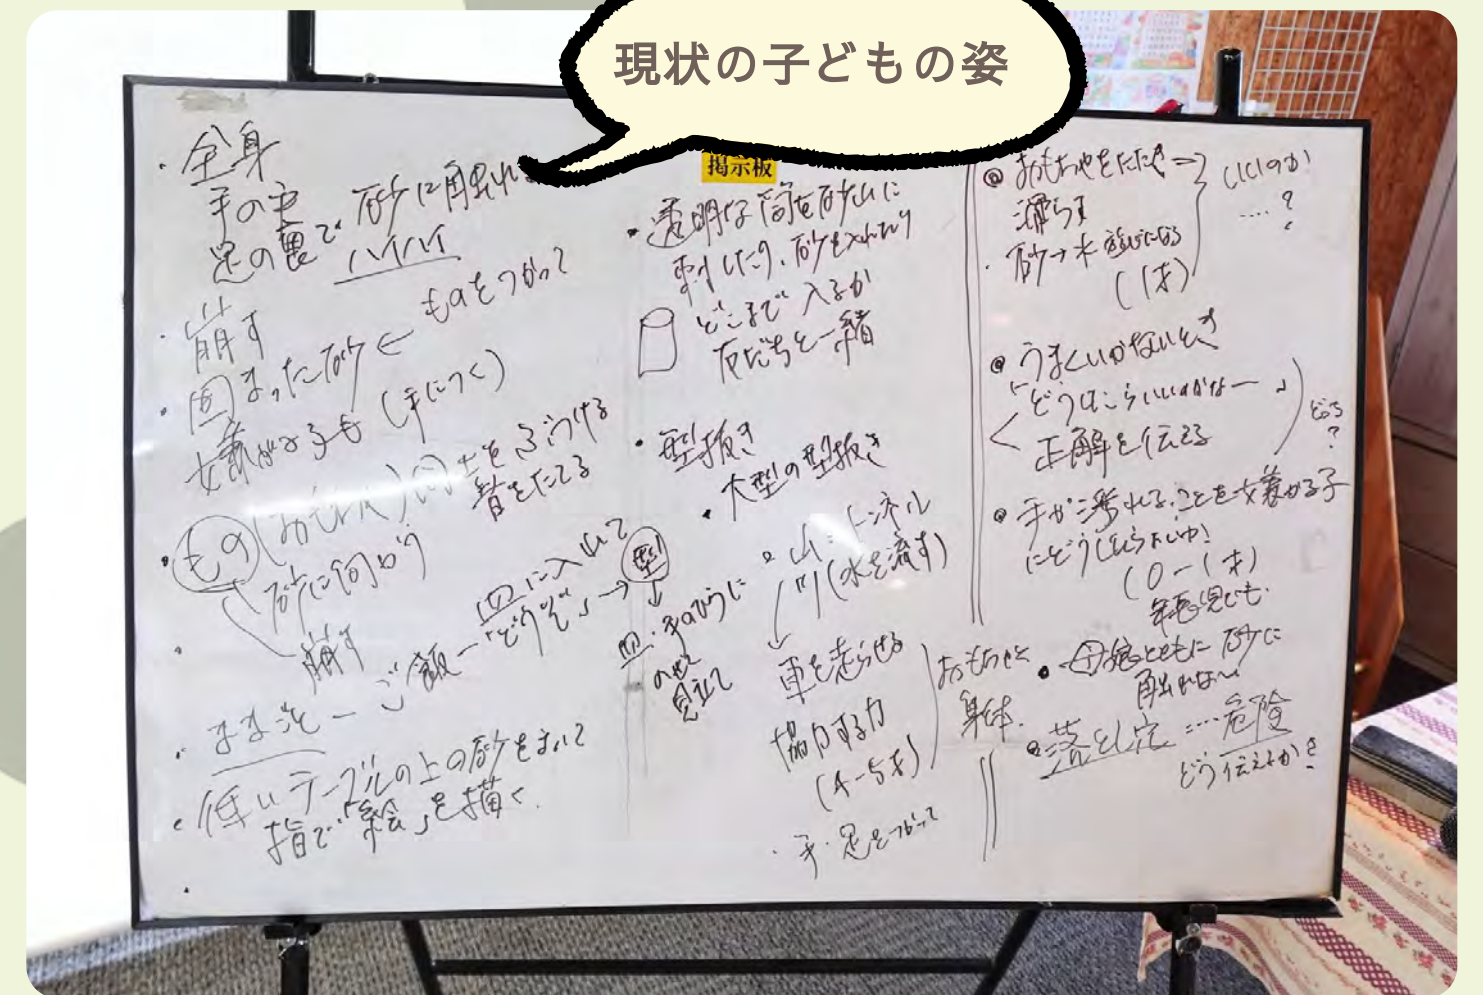 現状の子どもの姿
掲示板
・全身
手の中
足の裏で 砂に触れ
ハイハイ
・崩す
ものをつかって
・固まった砂 ←
嫌がる子も (手につく)
・もの(おもちゃ)同士をぶつける
音をたてる
砂に何か
崩す
・ままごと ー ご飯 ー 皿に入れて
「どうぞ」→ 型
皿・手のひらに
のせて
見立て
・低いテーブルの上の砂をまいて
指で「絵」を描く.
・透明な筒を砂山に
刺したり、砂を入れたり
どこまで入るか
友だちと一緒
・型抜き
・大型の型抜き
山・トンネル
川(水を流す)
車を走らせる
協力する力
(4-5才)
おもちゃと
身体.
・手・足をつかって
おもちゃをたたき
濡らす
・砂→水遊びになる
(1才)
いいのか
....?
うまくいかないとき
「どうしたらいいかなー」
正解を伝える
どうする
?
手が汚れることを嫌がる子
にどうしたらよいか!
(0-1才)
年長児でも.
ともに砂に
触れない
落とし穴 ....危険
どう伝えるか?